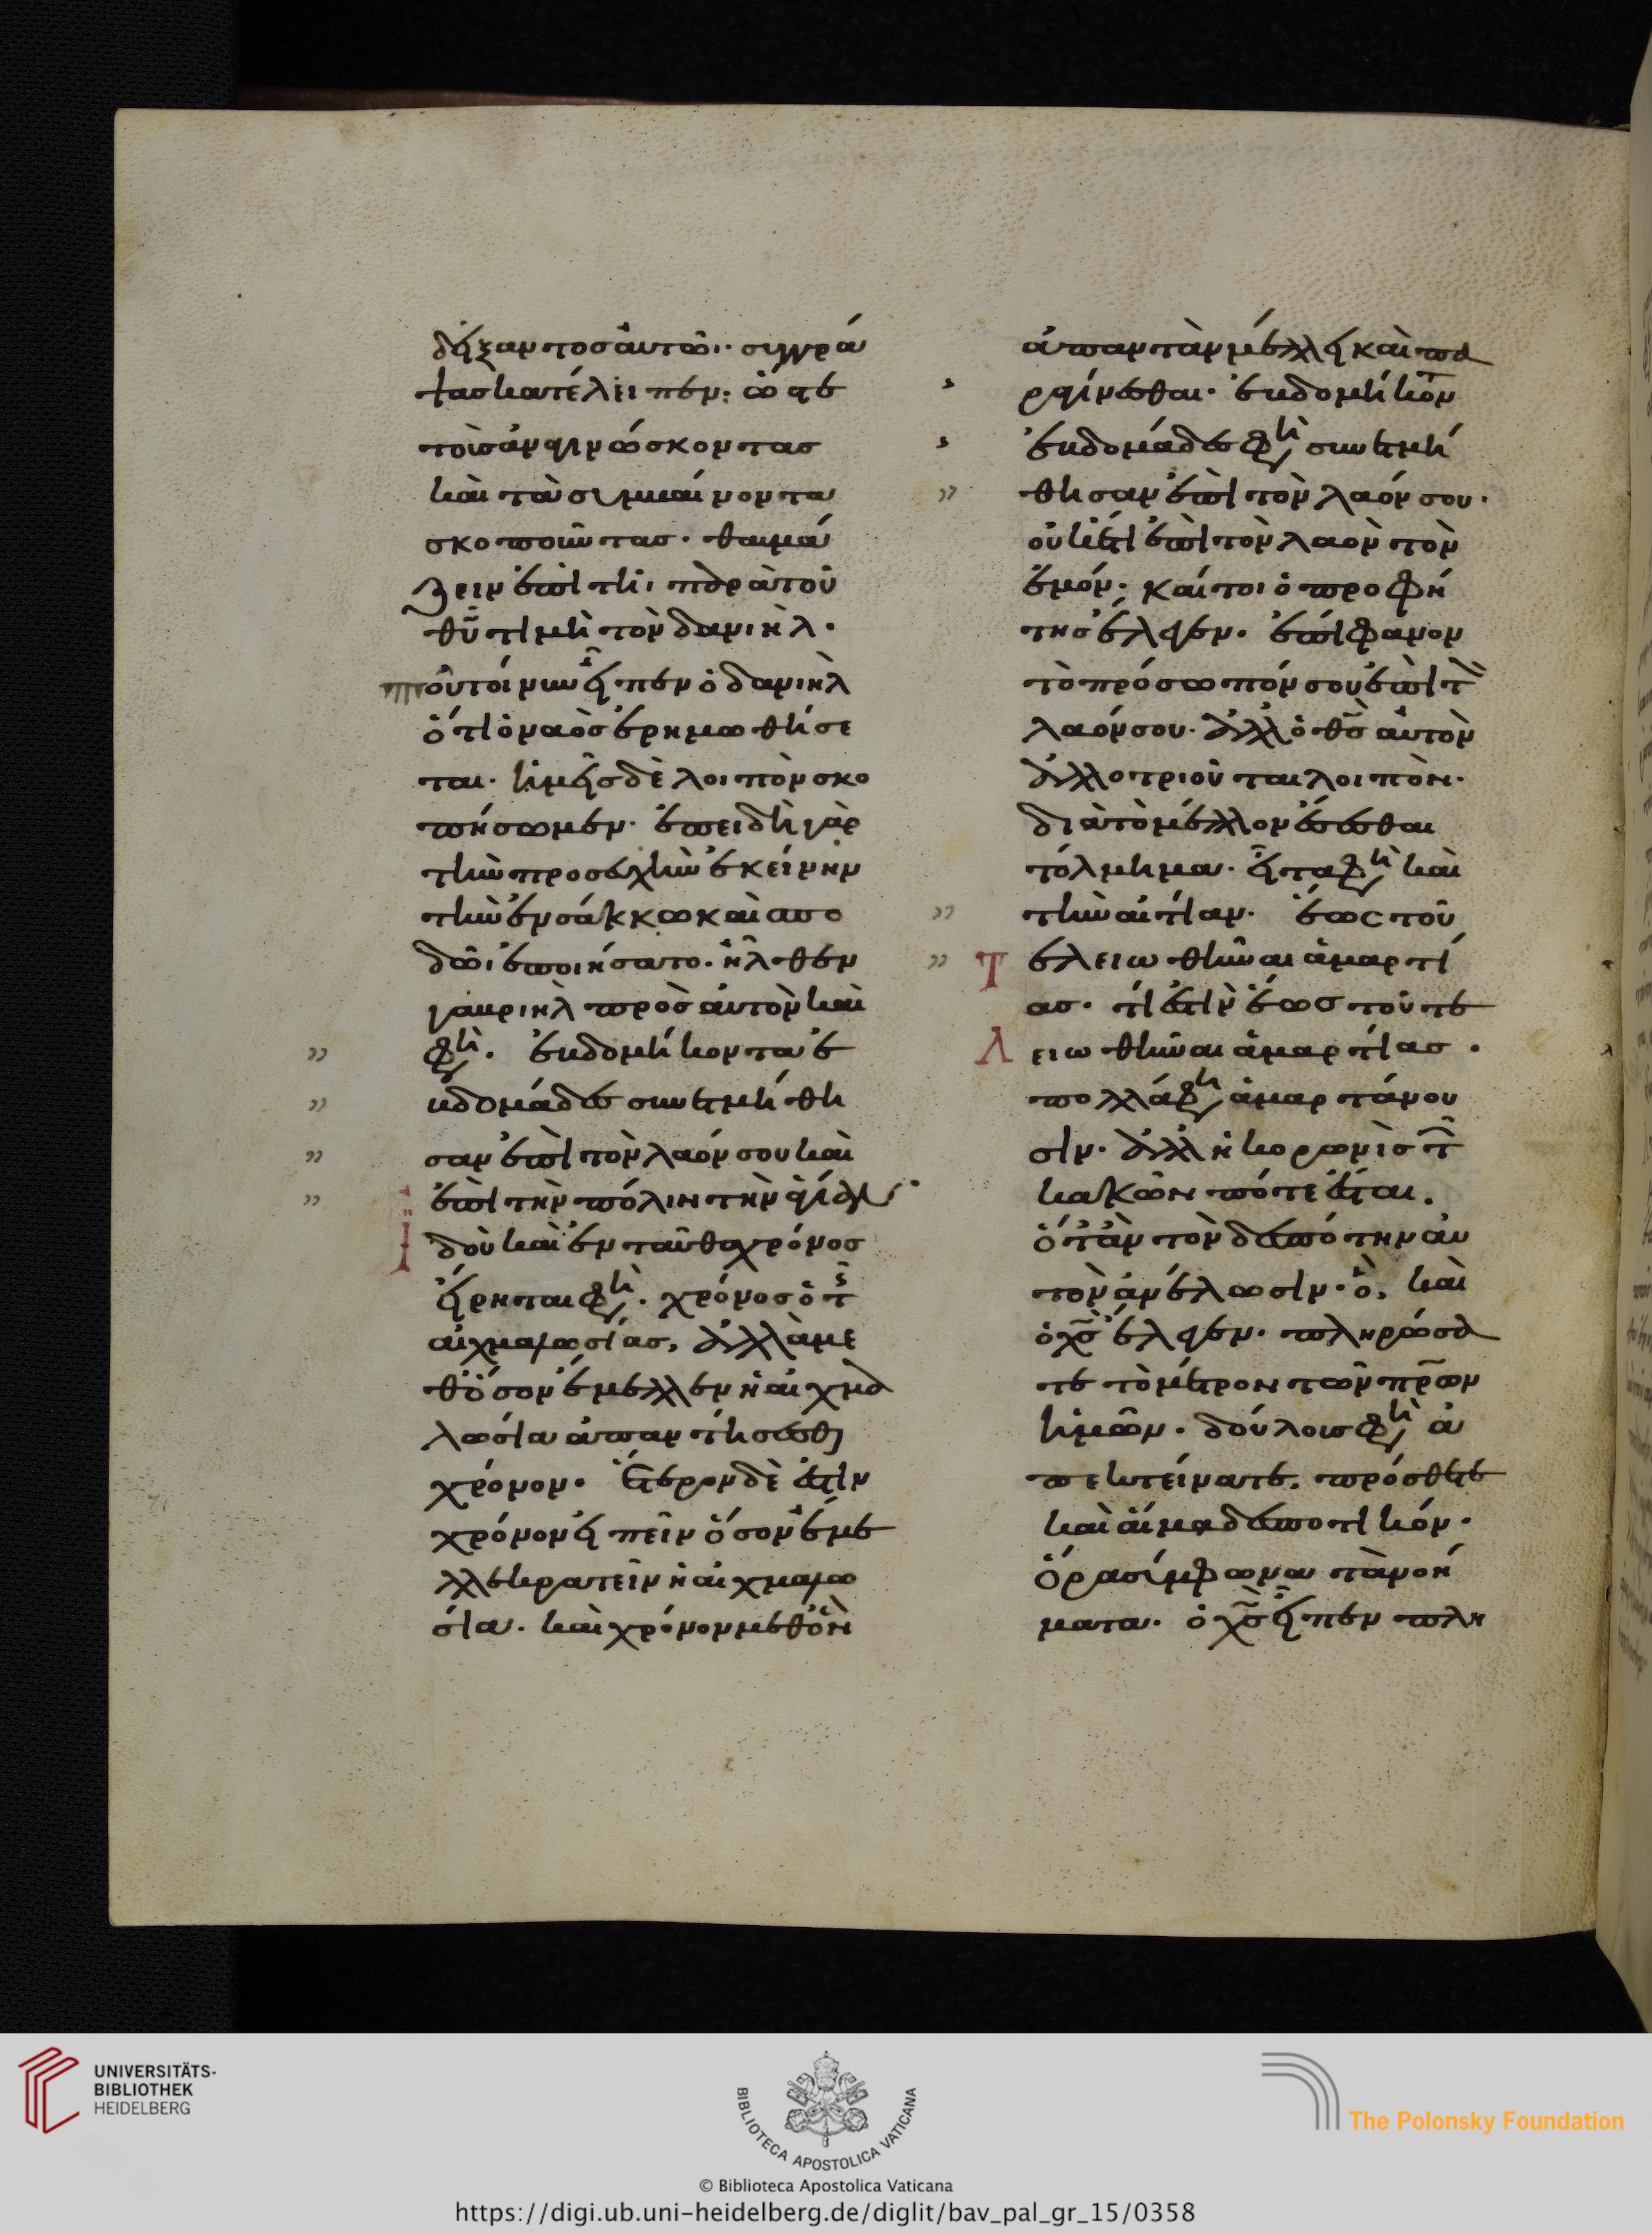 δείξαντος αὐτῶι· συγγρά
ψας κατέλειπεν· ὥστε
τοὺς ἀναγινώσκοντας
καὶ τὰ συμβαίνοντα
σκοποῦντας· θαυμά
ζειν ἐπὶ τῆι παρὰ τοῦ
θῦ τιμῆ τὸν δανιὴλ·
οὕτοίνυν εἶπεν ὁ δανιὴλ
ὅτι ὁ ναὸς ἐρημωθήσε
ται· ἡμεῖς δὲ λοιπὸν σκο
πήσωμεν· ἐπειδὴ γὰρ
τὴν προσευχὴν ἐκείνην
τὴν ἐν σάκκω καὶ σπο
δῶι ἐποιήσατο· ἦλθεν
γαβριὴλ πρὸς αὐτὸν καὶ
φησὶ· ἑβδομήκοντα ἑ
βδομάδες συνετμήθη
σαν ἐπὶ τὸν λαόν σου καὶ
ἐπὶ τὴν πόλιν τὴν ἁγίαν·
Ἰδοὺ καὶ ἐνταῦθα χρόνος
εἴρηται φησὶ· χρόνος ὁ τῆς
αἰχμαλωσίας, ἀλλὰ με
θ' ὅσον ἔμελλεν ἡ αἰχμα
λωσία ἀπαντήσεσθαι
χρόνον· ἕτερον δέ ἐστιν
χρόνον εἰπεῖν ὅσον ἔμε
λλε κρατεῖν ἡ αἰχμαλω
σία· καὶ χρόνον μεθ' ὃν
ἀπαντᾶν μέλλει καὶ πα
ραγίνεσθαι· ἑβδομήκοντα
ἑβδομάδες φησὶ συνετμή
θησαν ἐπὶ τὸν λαόν σου·
οὐκέτι ἐπὶ τὸν λαὸν τὸν
ἐμόν· καίτοι ὁ προφή
της ἔλεγεν· ἐπίφανον
τὸ πρόσωπόν σου ἐπὶ τὸν
λαόν σου· ἀλλ' ὁ θς αὐτὸν
ἀλλοτριοῦται λοιπὸν·
διὰ τὸ μέλλον ἔσεσθαι
τόλμημα· εἶτα φησὶ καὶ
τὴν αἰτίαν· ἕως τοῦ
Τελειωθῆναι ἁμαρτί
ας· τί ἐστὶν ἕως τοῦ τε
Λειωθῆναι ἁμαρτίας·
πολλά φησὶ ἁμαρτάνου
σιν· ἀλλ' ἡ κορωνὶς τῶν
κακῶν πότε ἔσται.
ὅταν τὸν δεσπότην αὐ
τὸν ἀνέλωσιν· ὃ, καὶ
ὁ χς ἔλεγεν· πληρώσα
τε τὸ μέτρον τῶν πρων
ἡμῶν· δούλους φησὶ ἀ
πεκτείνατε. πρόσθετε
καὶ αἷμα δεσποτικόν·
ὅρα σύμφωνα τὰ νοή
ματα· ὁ χς εἶπεν πλη
UNIVERSITÄTS-
BIBLIOTHEK
HEIDELBERG
BIBLIOTECA APOSTOLICA VATICANA
The Polonsky Foundation
© Biblioteca Apostolica Vaticana
https://digi.ub.uni-heidelberg.de/diglit/bav_pal_gr_15/0358